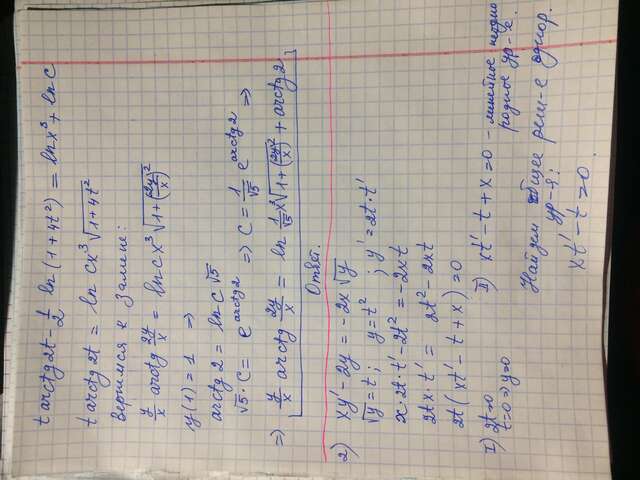 t arctg2t - 1/2 ln(1+4t²) = lnx³ + lnC
t arctg2t = ln Cx³√(1+4t²)
Вернемся к замене:
y/x arctg 2y/x = lncx³√(1+(2y/x)²)
y(1)=1 ⇒
arctg2 = lnC√5
√5·C = e^(arctg2) ⇒ C = 1/√5 e^(arctg2) ⇒
⇒ y/x arctg 2y/x = ln 1/√5 x³√(1+(2y/x)²) + arctg2
Ответ.
2) xy' - 2y = -2x√y
√y = t; y = t²; y' = 2t·t'
x·2t·t' - 2t² = -2xt
2tx·t' = 2t² - 2xt
2t(xt' - t + x) = 0
I) 2t=0
t=0 ⇒ y=0
II) xt' - t + x = 0 - линейное неодно
родное ур-е.
Найдем общее реш-е однор.
ур-я:
xt' - t = 0.